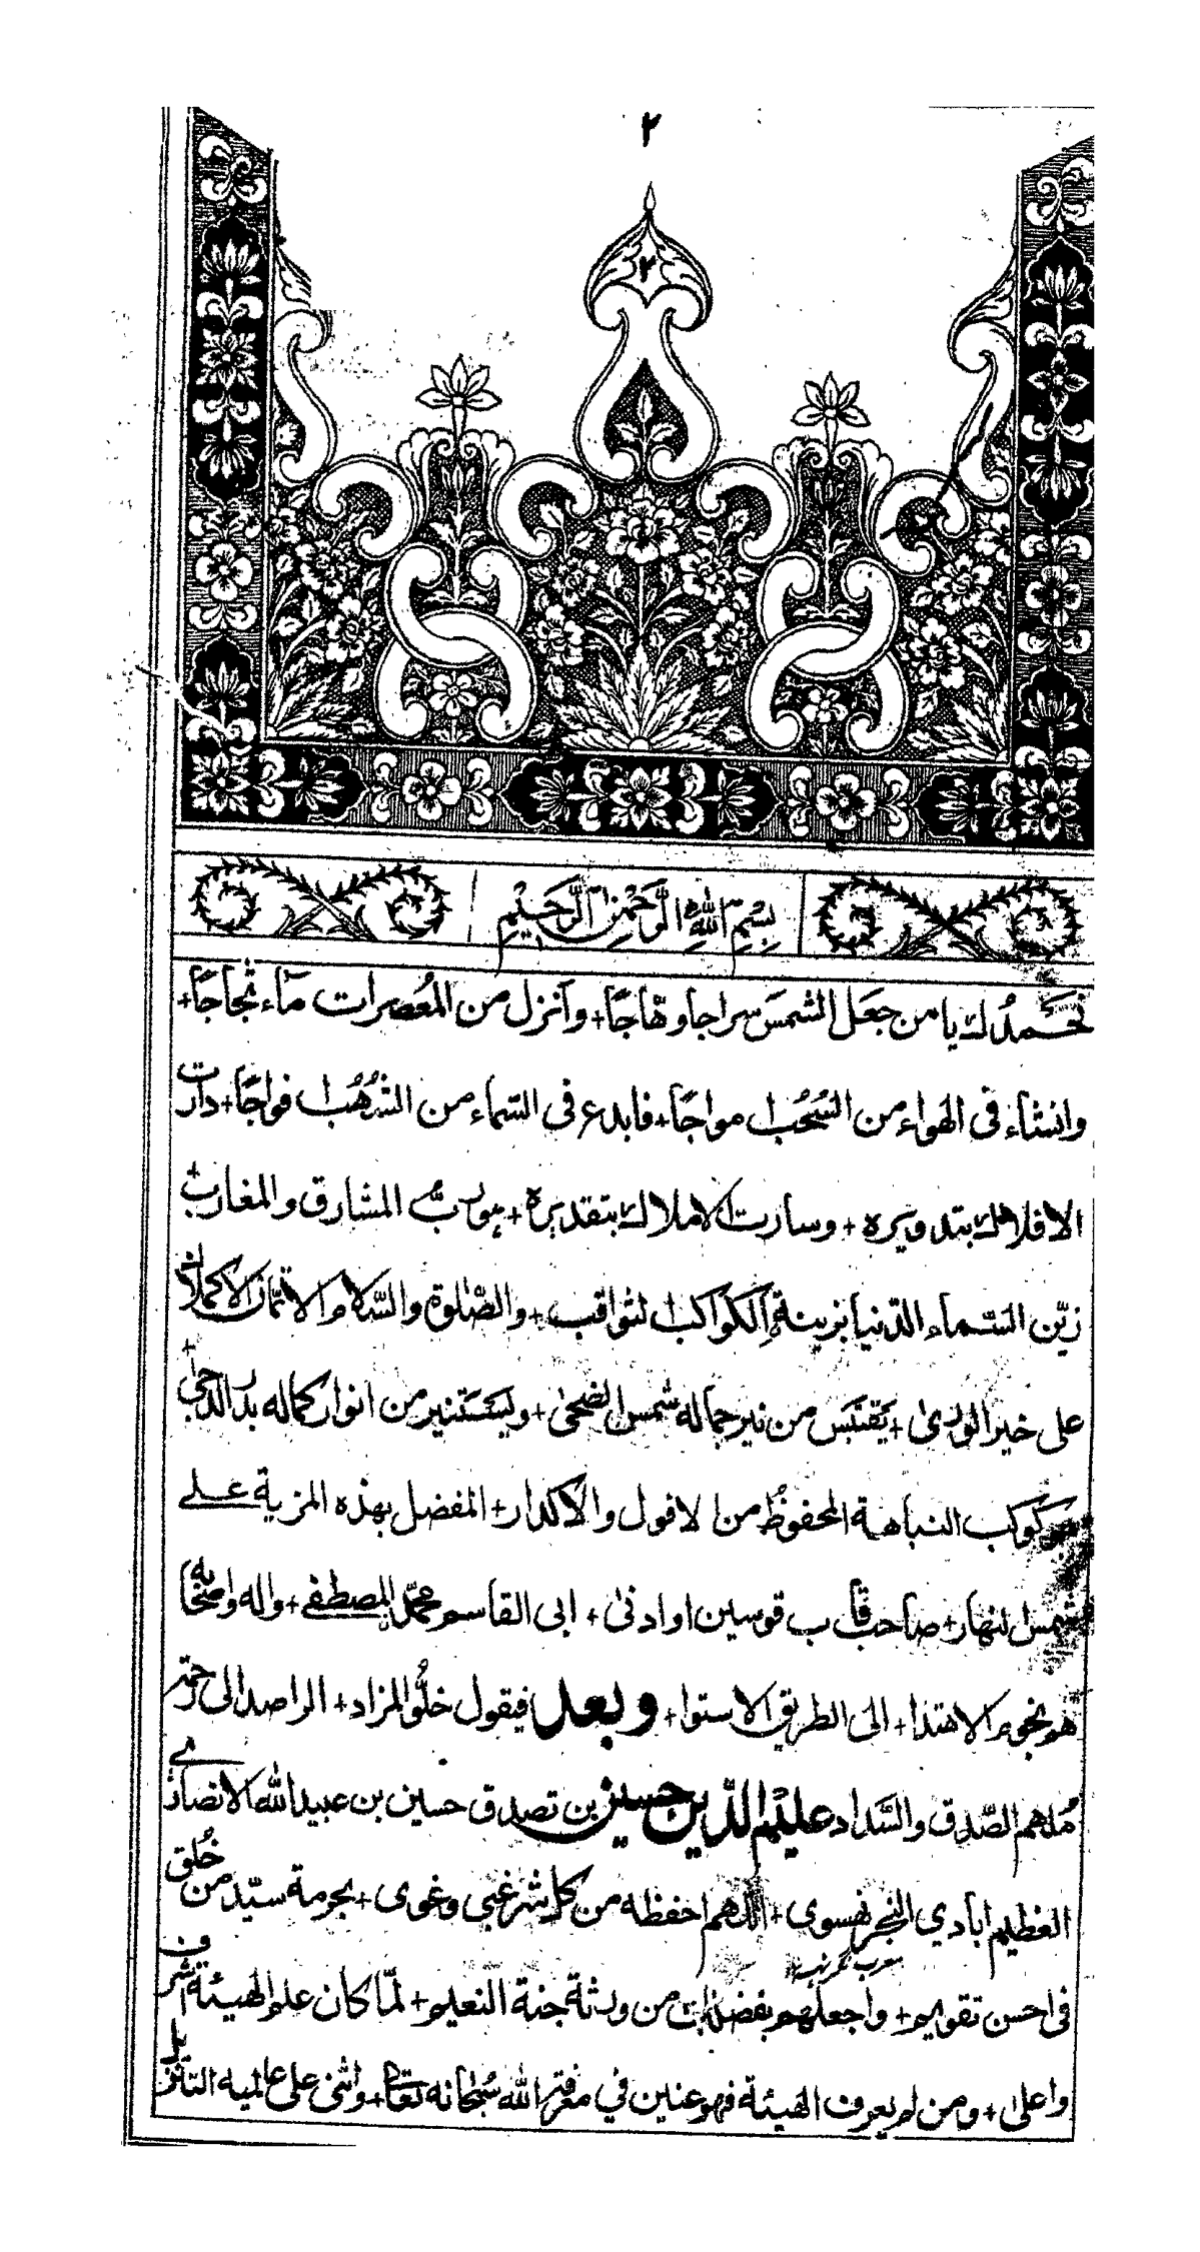 ٢
٢
بِسْمِ اللهِ الرَّحْمٰنِ الرَّحِيْمِ
نحَمدُك يا من جعَل الشمسَ سراجا وهّاجًا+ وأنزل من المُعصرات مآء ثجاجًا+
وانشاء فى الهواء من السُحُب امواجًا+ فابدع فى السّماء من الشُهُب افواجًا+ دارت
الافلاك بتدويره+ وسارت الاملاك بتقديره+ هو ربُّ المشارق والمغارب+
زيّن السّماء الدّنيا بزينةِ الكواكب الثواقب+ والصّلوة والسّلام الاتمّان الاكملان
على خير الورىٰ+ يقتبس من نير جماله شمس الضحىٰ+ ويستنير من انوار كماله بدر الدجىٰ+
كوكب النباهة المحفوظُ من الافول والاكدار+ المفضل بهذه المزية على
شمس النهار+ صاحب قاب قوسين او ادنىٰ+ ابى القاسم محمّد المصطفے+ واله واصحابه
هم نجوم الاهتدا+ الى الطريق الاستوا+ وبعد فيقول خلُّو المزاد+ الراصد الى رحمة
مُلهم الصّدق والسَّداد عليم الدّين حسين بن تصدق حسين بن عبيد الله الانصارے
العظيم ابادي النجرنهسوى+ اللهم احفظه من كل شر غبى وغوى+ بحرمة سيّد من خُلق
معرب نگرنہسہ
فى احسن تقويم+ واجعلهم بفضلك من ورثة جنة النعيم+ لمّا كان علم الهيئة اشرف
واعلى+ ومن لم يعرف الهيئة فهو عنين في معرفة الله سُبحانه تعالىٰ+ واثنى على عالميه التنزيل